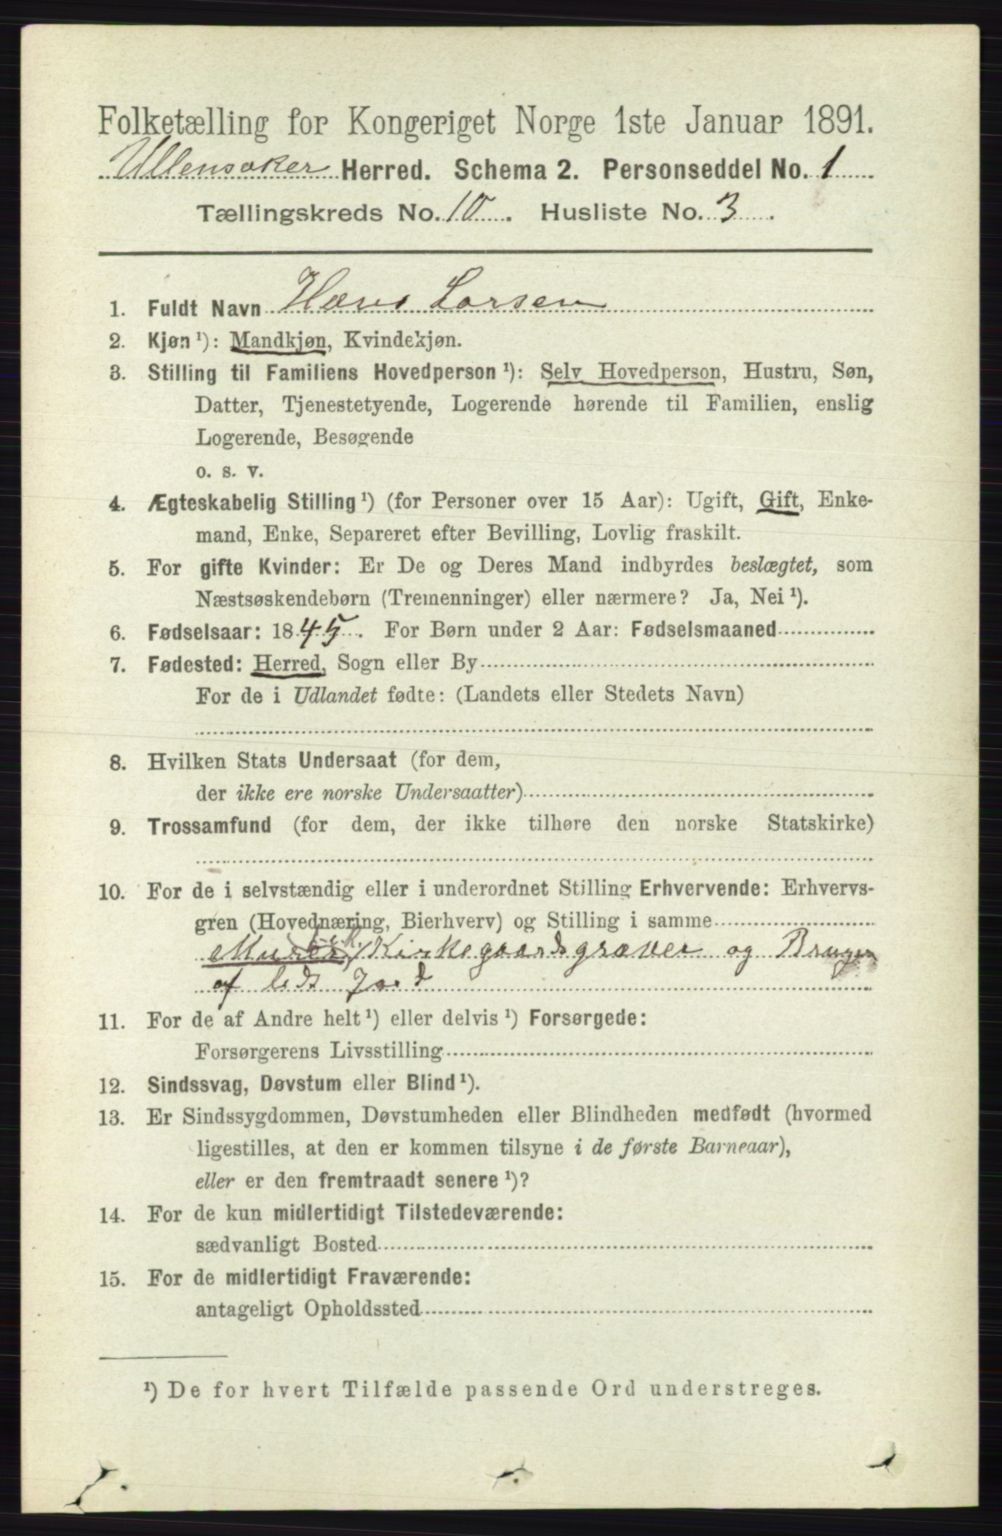 Folketælling for Kongeriget Norge 1ste Januar 1891.
Ullensaker Herred. Schema 2. Personseddel No. 1
Tællingskreds No. 10. Husliste No. 3.
1. Fuldt Navn Hans Larsen
2. Kjøn ¹): Mandkjøn, Kvindekjøn.
3. Stilling til Familiens Hovedperson ¹): Selv Hovedperson, Hustru, Søn,
Datter, Tjenestetyende, Logerende hørende til Familien, enslig
Logerende, Besøgende
o. s. v.
4. Ægteskabelig Stilling ¹) (for Personer over 15 Aar): Ugift, Gift, Enke-
mand, Enke, Separeret efter Bevilling, Lovlig fraskilt.
5. For gifte Kvinder: Er De og Deres Mand indbyrdes beslægtet, som
Næstsøskendebørn (Tremenninger) eller nærmere? Ja, Nei ¹).
6. Fødselsaar: 1845. For Børn under 2 Aar: Fødselsmaaned
7. Fødested: Herred, Sogn eller By
For de i Udlandet fødte: (Landets eller Stedets Navn)
8. Hvilken Stats Undersaat (for dem,
der ikke ere norske Undersaatter)
9. Trossamfund (for dem, der ikke tilhøre den norske Statskirke)
10. For de i selvstændig eller i underordnet Stilling Erhvervende: Erhvervs-
gren (Hovednæring, Bierhverv) og Stilling i samme
Kirkegaardsgraver og Bruger
af leiet Jord
11. For de af Andre helt ¹) eller delvis ¹) Forsørgede:
Forsørgerens Livsstilling
12. Sindssvag, Døvstum eller Blind ¹).
13. Er Sindssygdommen, Døvstumheden eller Blindheden medfødt (hvormed
ligestilles, at den er kommen tilsyne i de første Barneaar),
eller er den fremtraadt senere ¹)?
14. For de kun midlertidigt Tilstedeværende:
sædvanligt Bosted
15. For de midlertidigt Fraværende:
antageligt Opholdssted
¹) De for hvert Tilfælde passende Ord understreges.